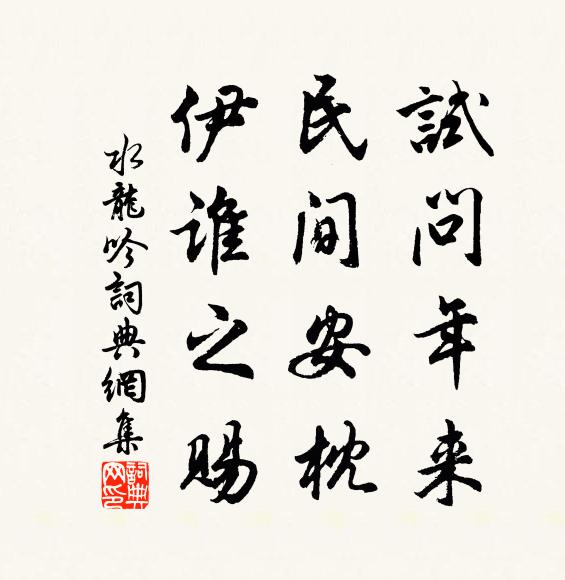 試問年来
民間安枕
伊誰之賜
水龍吟詞典網集
詞典
网印